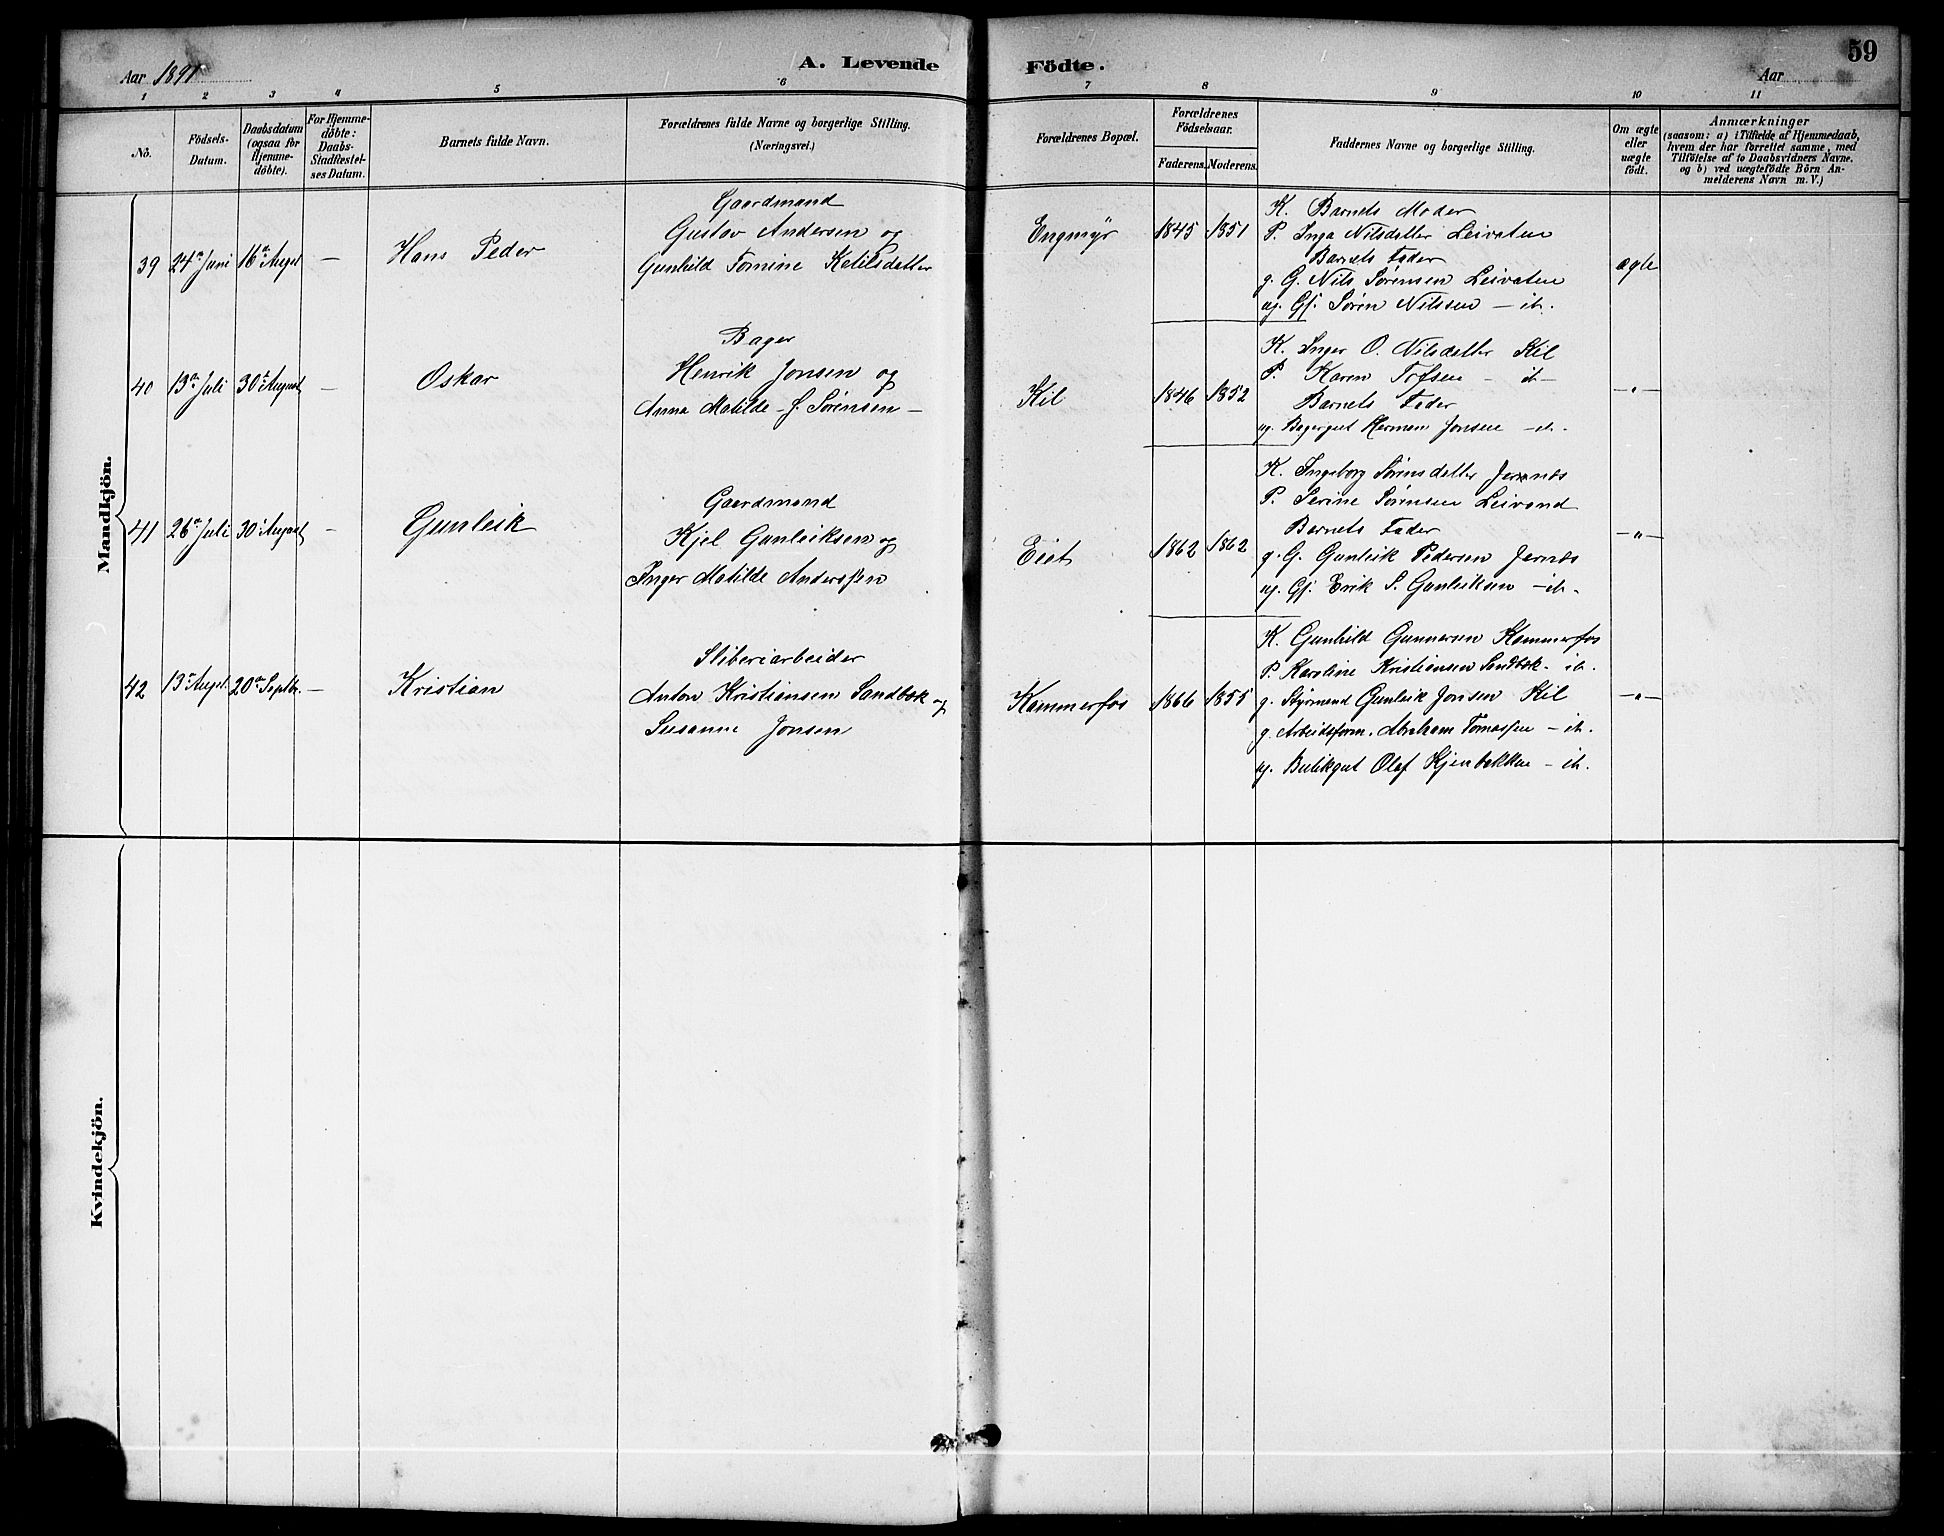 59
Aar 1891
A. Levende Födte.
Aar
1 2 3 4 5 6 7 8 9 10 11
No.
Födsels-Datum.
Daabsdatum (ogsaa for Hjemme-döbte).
For Hjemme-døbte: Daabs-Stadfæstel-ses Datum.
Barnets fulde Navn.
Forældrenes fulde Navne og borgerlige Stilling. (Næringsvei.)
Forældrenes Bopæl.
Forældrenes Födselsaar.
Faderens. Moderens.
Faddernes Navne og borgerlige Stilling.
Om ægte eller uægte födt.
Anmærkninger
(saasom: a) i Tilfælde af Hjemmedaab,
hvem der har forrettet samme, med
Tilføielse af to Daabsvidners Navne,
og b) ved uægtefödte Börn An-
melderens Navn m. V.)
Mandkjön.
39 24de Juni 16de Augst — Hans Peder
Gaardmand
Gustav Andersen og
Gunhild Tomine Ketilsdatter
Engmyr 1845 1851
K. Barnets Moder
P. Inga Nilsdatter Leivaten
Barnets Fader
g. G. Nils Sørensen Leivaten
ug. Gf. Søren Nilssen — it.
ægte
40 13de Juli 30te August — Oskar
Bager
Henrik Jonsen og
Anna Matilde f. Sørensen —
Kil 1846 1852
K. Inger O. Nilsdatter Kil
P. Karen Tofsen — it —
Barnets Fader
ug. Bagergut Herman Jonsen — it.
—"—
41 26de Juli 30te August — Gunleik
Gaardmand
Kjel Gunleiksen og
Inger Matilde Anderssen
Eiet 1862 1862
K. Ingeborg Sørensdatter Jernæs
P. Serine Sørensen Leivand
Barnets Fader
g. G. Gunleik Pedersen Jernæs
ug. Gf. Erik S. Gunleiksen — it.
—"—
42 13de Augst. 20de Septbr. — Kristian
Sliberiarbeider
Anton Kristiansen Sandbok og
Susanne Jonsen
Kammerfos 1866 1855
K. Gunhild Gunnersen Kammerfos
P. Karoline Kristiansen Sandbok — it.
g. Styrmand Gunleik Jonsen Kil
g. Arbeidsform. Abraham Tomassen — it.
ug. Butikgut Olaf Kjenbakken — it.
—"—
Kvindekjön.